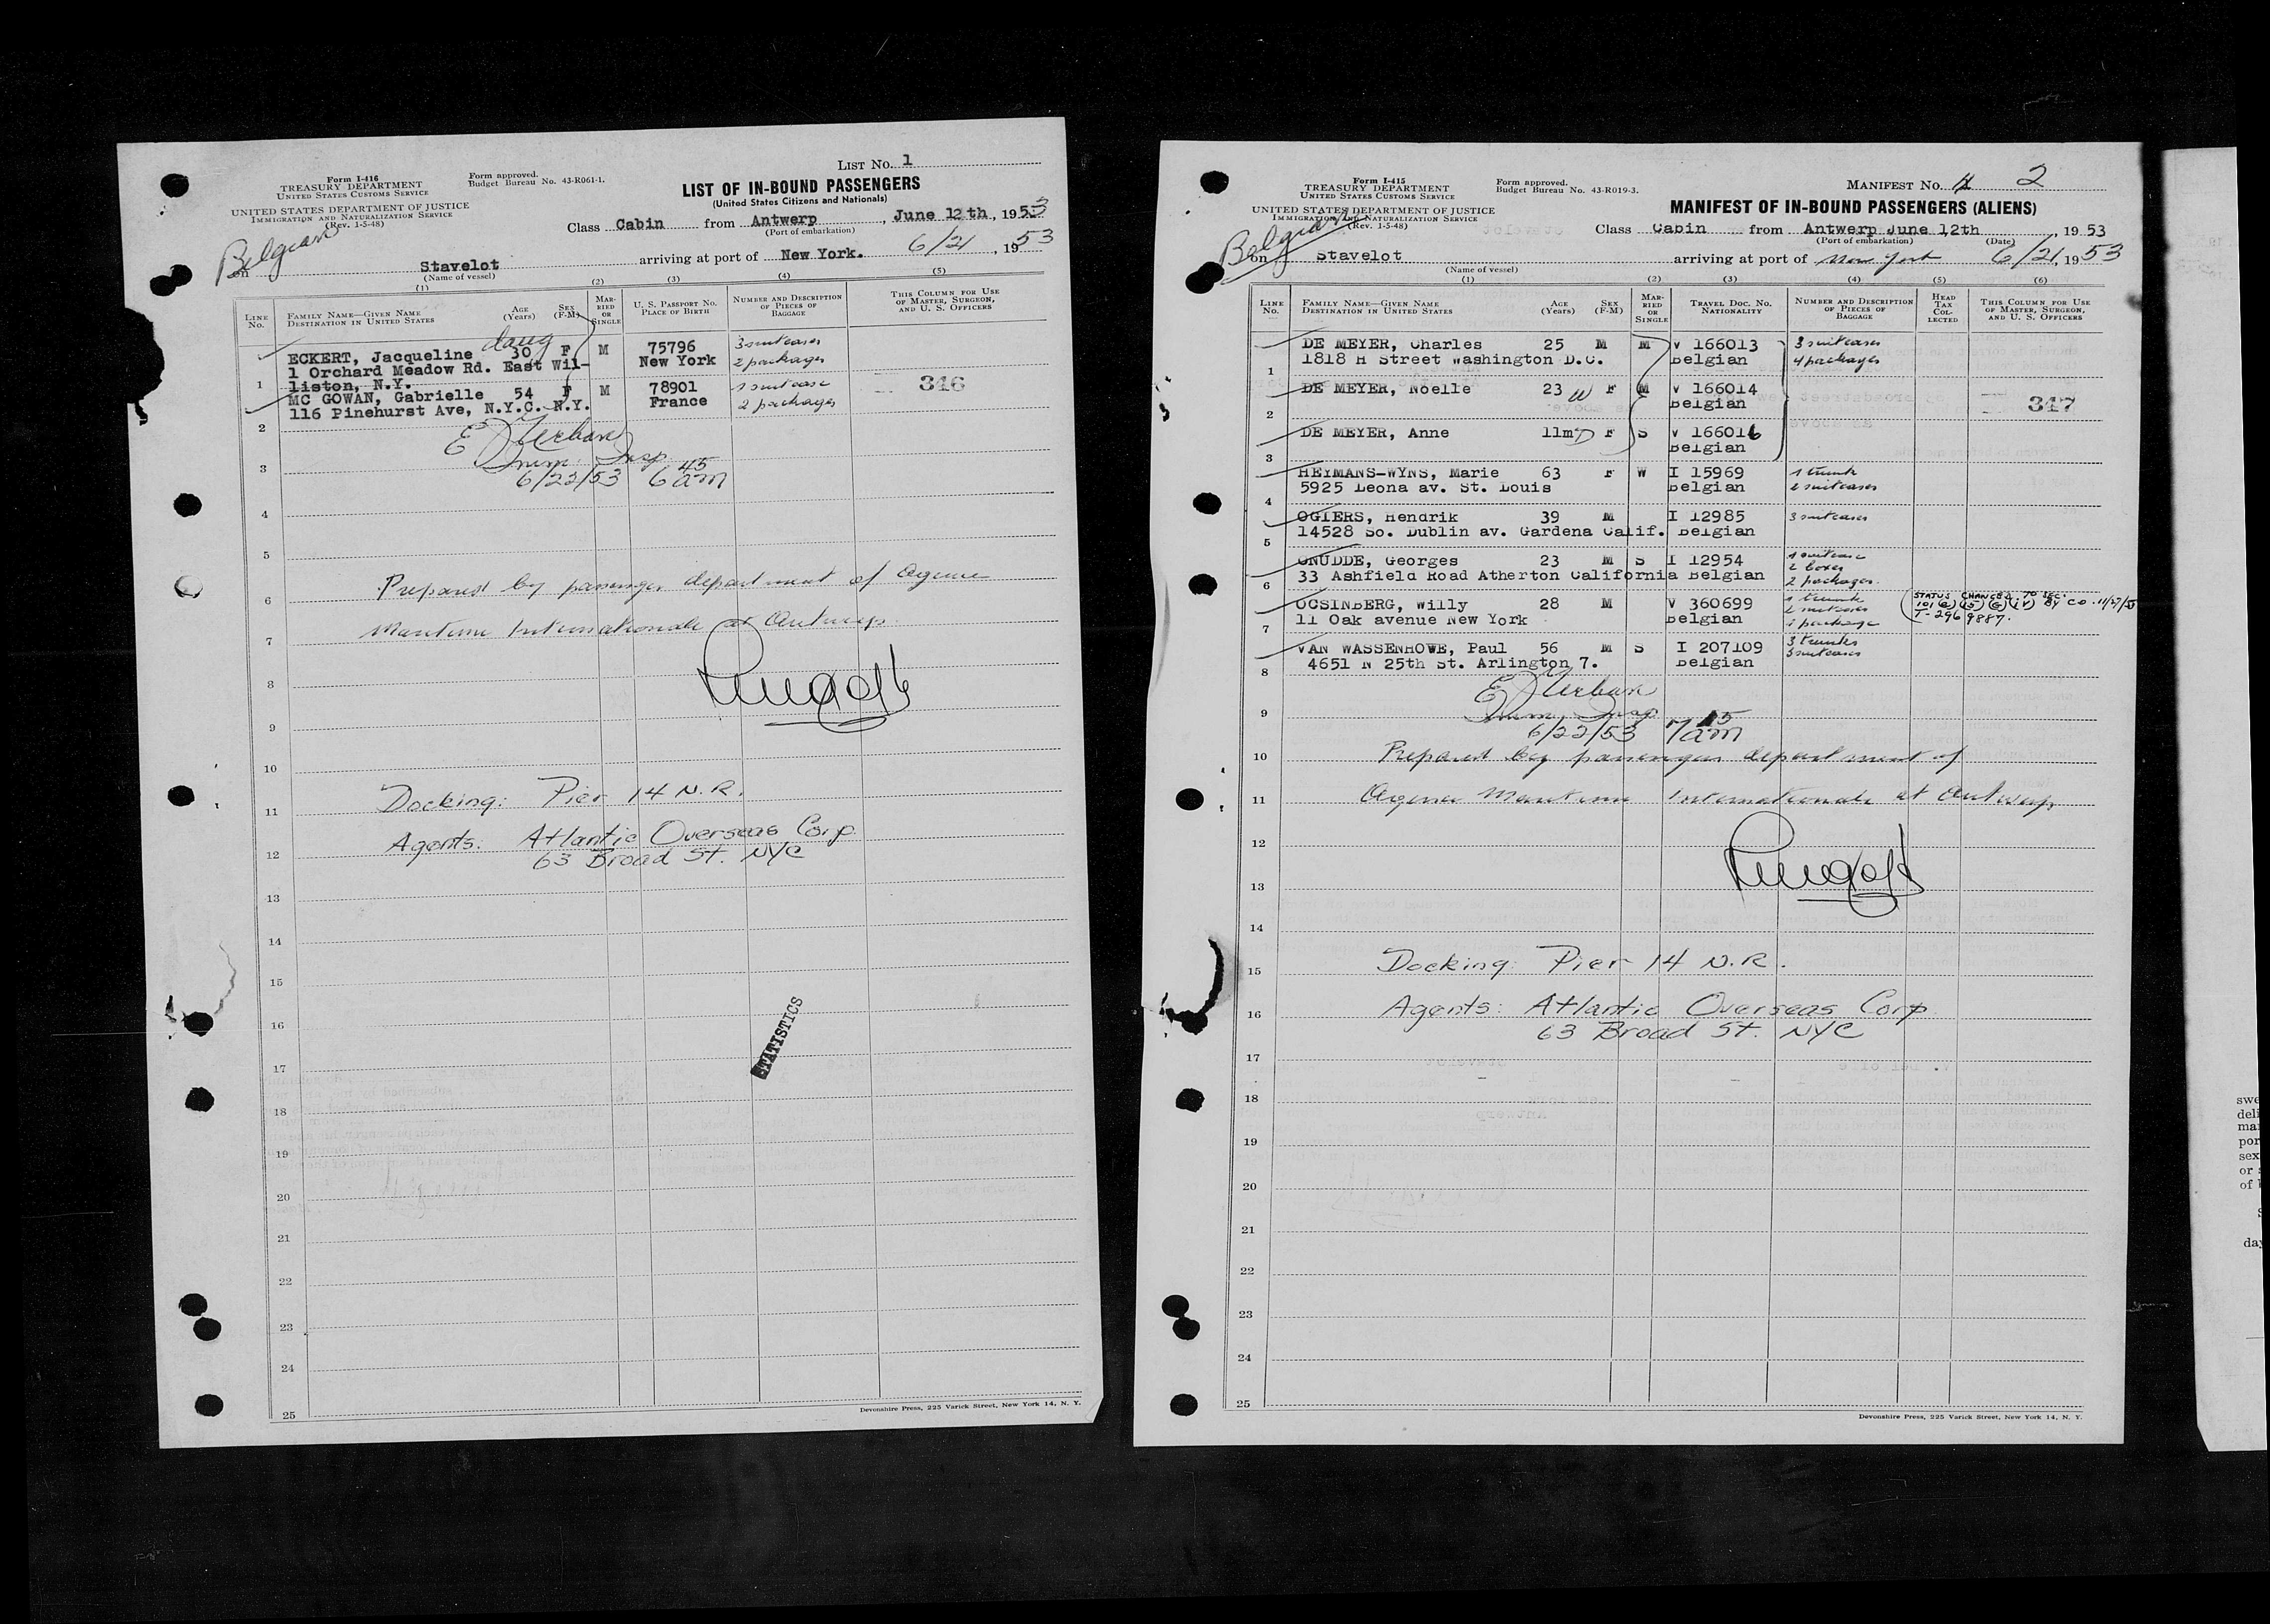 LIST No. 1
Form I-416
TREASURY DEPARTMENT
UNITED STATES CUSTOMS SERVICE
Form approved.
Budget Bureau No. 43-R061-1.
UNITED STATES DEPARTMENT OF JUSTICE
IMMIGRATION AND NATURALIZATION SERVICE
(Rev. 1-5-48)
LIST OF IN-BOUND PASSENGERS
(United States Citizens and Nationals)
Class Cabin from Antwerp, June 12th, 1953
(Port of embarkation)
Belgian
on Stavelot arriving at port of New York. 6/21, 1953
(Name of vessel)
(1) (2) (3) (4) (5)
LINE No. FAMILY NAME—GIVEN NAME DESTINATION IN UNITED STATES AGE (Years) SEX (F-M) MARRIED OR SINGLE U. S. PASSPORT No. PLACE OF BIRTH NUMBER AND DESCRIPTION OF PIECES OF BAGGAGE THIS COLUMN FOR USE OF MASTER, SURGEON, AND U. S. OFFICERS
daug
ECKERT, Jacqueline 30 F M 75796 3 suitcases
1 Orchard Meadow Rd. East Wil- New York 2 packages
1 liston, N.Y.
MC GOWAN, Gabrielle 54 F M 78901 1 suitcase 346
116 Pinehurst Ave, N.Y.C. N.Y. France 2 packages
2
E J Urban
3 Imm. Insp.
6/22/53 6 45 am
4
5
6 Prepared by passenger department of Agence
7 Maritime Internationale at Antwerp.
8
9
10
11 Docking: Pier 14 N.R.
12 Agents: Atlantic Overseas Corp.
63 Broad St. NYC
13
14
15
16
STATISTICS
17
18
19
20
21
22
23
24
25
Devonshire Press, 225 Varick Street, New York 14, N. Y.
Form I-415
TREASURY DEPARTMENT
UNITED STATES CUSTOMS SERVICE
Form approved.
Budget Bureau No. 43-R019-3.
MANIFEST No. 2
UNITED STATES DEPARTMENT OF JUSTICE
IMMIGRATION AND NATURALIZATION SERVICE
(Rev. 1-5-48)
MANIFEST OF IN-BOUND PASSENGERS (ALIENS)
Class Cabin from Antwerp June 12th, 1953
(Port of embarkation) (Date)
Belgian
on Stavelot arriving at port of New York 6/21, 1953
(Name of vessel)
(1) (2) (3) (4) (5) (6)
LINE No. FAMILY NAME—GIVEN NAME DESTINATION IN UNITED STATES AGE (Years) SEX (F-M) MARRIED OR SINGLE TRAVEL DOC. No. NATIONALITY NUMBER AND DESCRIPTION OF PIECES OF BAGGAGE HEAD TAX COLLECTED THIS COLUMN FOR USE OF MASTER, SURGEON, AND U. S. OFFICERS
DE MEYER, Charles 25 M M V 166013 3 suitcases
1818 H Street Washington D.C. Belgian 4 packages
1
DE MEYER, Noelle 23 W F M V 166014
Belgian 347
2
DE MEYER, Anne 11m D F S V 166016
3 Belgian
HEYMANS-WYNS, Marie 63 F W I 15969 1 trunk
5925 Leona av. St. Louis Belgian 2 suitcases
4
OGIERS, Hendrik 39 M I 12985 3 suitcases
14528 So. Dublin av. Gardena Calif. Belgian
5
ONUDDE, Georges 23 M S I 12954 1 suitcase
2 boxes
33 Ashfield Road Atherton California Belgian 2 packages.
6
OCSINBERG, Willy 28 M V 360699 1 trunk
2 suitcases
11 Oak avenue New York Belgian 1 package
STATUS CHANGED TO SEC.
101(a)(15)(G)(iv) BY CO 11/27/53
T-296 9887.
7
VAN WASSENHOWE, Paul 56 M S I 207109 3 trunks
4651 N 25th St. Arlington 7. Belgian 3 suitcases
8
E J Urban
9 Imm. Insp
6/22/53 7 15 am
10 Prepared by passenger department of
11 Agence Maritime Internationale at Antwerp
12
13
14
15 Docking: Pier 14 N.R.
16 Agents: Atlantic Overseas Corp.
63 Broad St. NYC
17
18
19
20
21
22
23
24
25
Devonshire Press, 225 Varick Street, New York 14, N. Y.
swe
deli
ma
por
sex
or
of
day